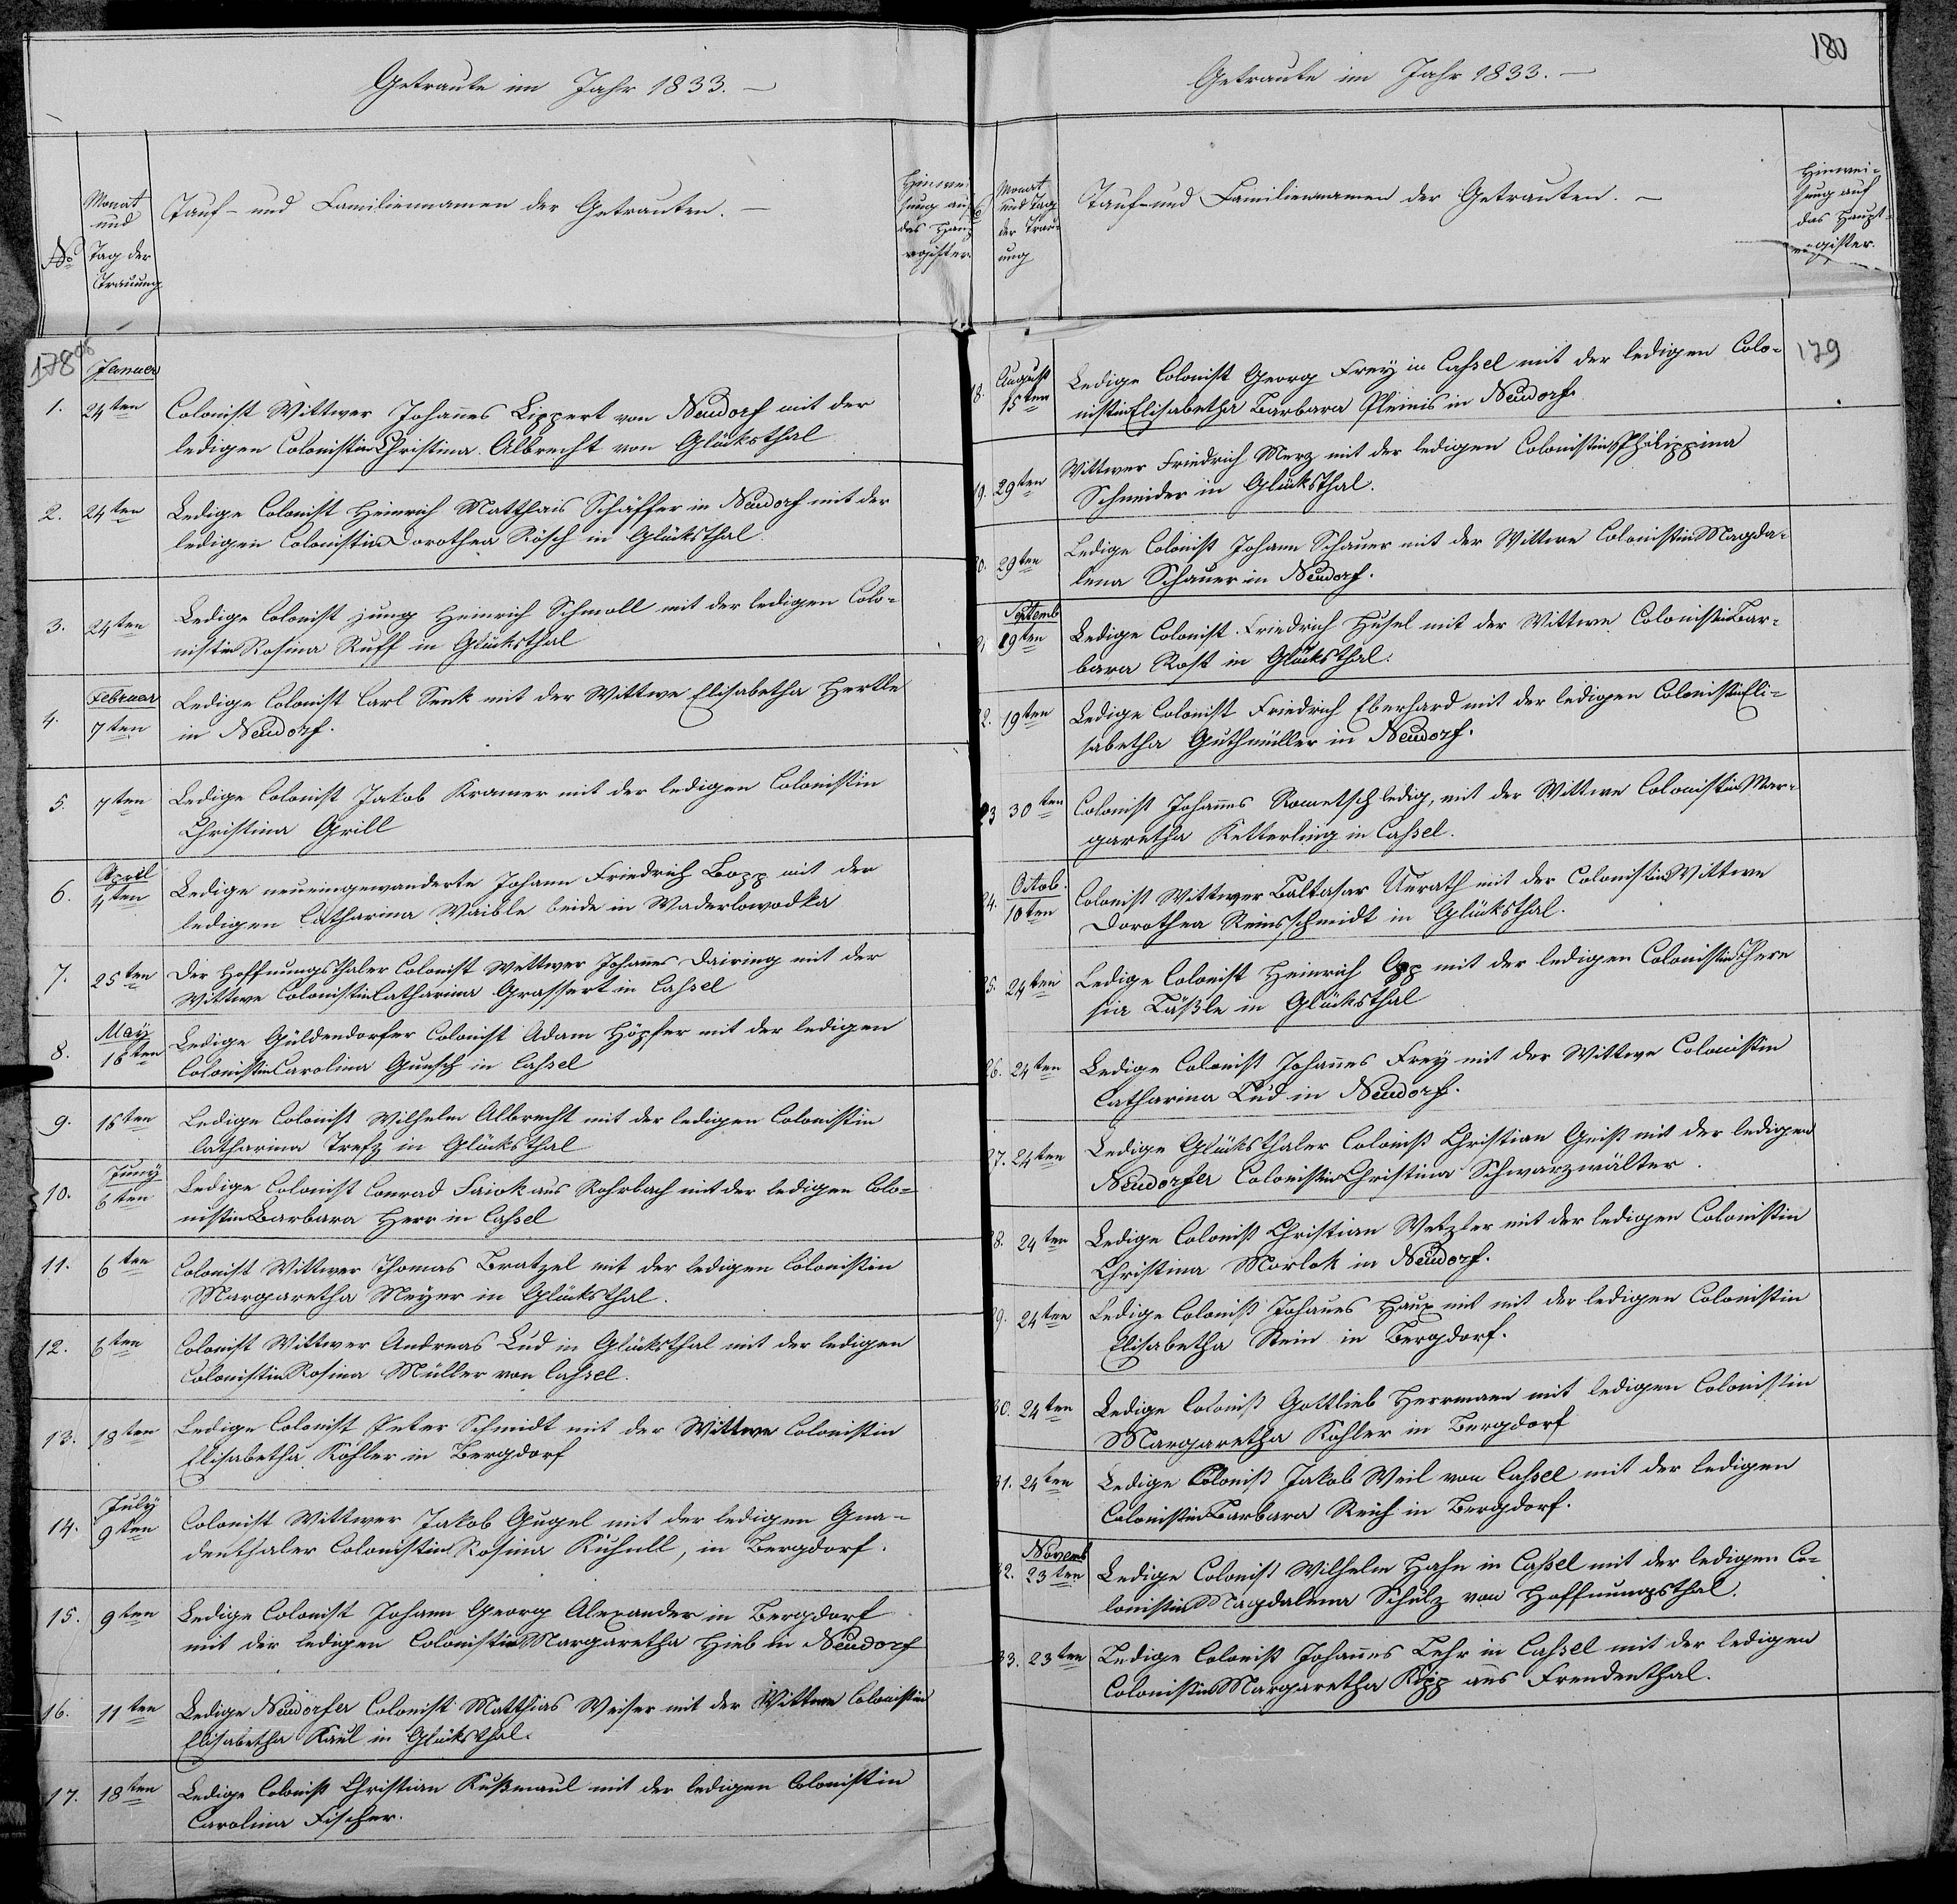 Getraute im Jahr 1833. —
No
Monat
und
Tag der
Trauung
Tauf- und Familiennamen der Getrauten. —
Hinwei-
sung auf
das Haupt-
register
178
Januar
1. 24ten Colonist Wittwer Johannes Lippert von Neudorf mit der
ledigen Colonistin Christina Albrecht von Glücksthal
2. 24ten Ledige Colonist Heinrich Matthais Schäffer in Neudorf mit der
ledigen Colonistin Dorothea Rösch in Glücksthal.
3. 24ten Ledige Colonist jung Heinrich Schmoll mit der ledigen Colo-
nistin Rosina Ruff in Glücksthal
Februar
4. 7ten Ledige Colonist Carl Senk mit der Wittwe Elisabetha Hertle
in Neudorf.
5. 7ten Ledige Colonist Jakob Kramer mit der ledigen Colonistin
Christina Grill
April
6. 4ten Ledige neueingewanderte Johann Friedrich Bozz mit der
ledigen Catharina Waible beide in Waderlowodka
7. 25ten Der Hoffnungsthaler Colonist Wittwer Johannes Dairing mit der
Wittwe Colonistin Catharina Grassert in Cassel
May
8. 16ten Ledige Güldendorfer Colonist Adam Höpfer mit der ledigen
Colonistin Carolina Gunsch in Cassel
9. 16ten Ledige Colonist Wilhelm Albrecht mit der ledigen Colonistin
Catharina Trefz in Glücksthal
Juny
10. 6ten Ledige Colonist Conrad Faick aus Rohrbach mit der ledigen Colo-
nistin Barbara Herr in Cassel
11. 6ten Colonist Wittwer Thomas Bratzel mit der ledigen Colonistin
Margaretha Meyer in Glücksthal.
12. 6ten Colonist Wittwer Andreas Lud in Glücksthal mit der ledigen
Colonistin Rosina Müller von Cassel.
13. 18ten Ledige Colonist Peter Schmidt mit der Wittwe Colonistin
Elisabetha Köhler in Bergdorf
July
14. 9ten Colonist Wittwer Jakob Gugel mit der ledigen Gna-
denthaler Colonistin Rosina Kuhnll, in Bergdorf.
15. 9ten Ledige Colonist Johann Georg Alexander in Bergdorf
mit der ledigen Colonistin Margaretha Hieb in Neudorf
16. 11ten Ledige Neudorfer Colonist Matthias Weiser mit der Wittwe Colonistin
Elisabetha Kaul in Glücksthal.
17. 18ten Ledige Colonist Christian Kußmaul mit der ledigen Colonistin
Carolina Fischer.
180
Getraute im Jahr 1833. —
Monat
und Tag
der Trau-
ung
Tauf- und Familiennamen der Getrauten. —
Hinwei-
sung auf
das Haupt-
register.
179
August
18. 15ten Ledige Colonist Georg Frey in Cassel mit der ledigen Colo-
nistin Elisabetha Barbara Pleinis in Neudorf.
19. 29ten Wittwer Friedrich Merz mit der ledigen Colonistin Philippina
Schneider in Glücksthal.
20. 29ten Ledige Colonist Johann Schauer mit der Wittwe Colonistin Magda-
lena Schauer in Neudorf.
Septemb
21. 19ten Ledige Colonist Friedrich Husel mit der Wittwe Colonistin Bar-
bara Rost in Glücksthal.
22. 19ten Ledige Colonist Friedrich Eberhard mit der ledigen Colonistin Eli-
sabetha Guthmüller in Neudorf.
23 30ten Colonist Johannes Rometsch ledig, mit der Wittwe Colonistin Mar-
garetha Ketterling in Cassel.
Octob.
24. 10ten Colonist Wittwer Baltasar Unrath mit der Colonistin Wittwe
Dorothea Reinsschmidt in Glücksthal.
25. 24ten Ledige Colonist Heinrich Opp mit der ledigen Colonistin There
sia Däßle in Glücksthal
26. 24ten Ledige Colonist Johannes Frey mit der Wittwe Colonistin
Catharina Lud in Neudorf.
27. 24ten Ledige Glücksthaler Colonist Christian Geist mit der ledigen
Neudorfer Colonistin Christina Schwarzwälter.
28. 24ten Ledige Colonist Christian Metzler mit der ledigen Colonistin
Christina Morlok in Neudorf.
29. 24ten Ledige Colonist Johannes Haux mit mit der ledigen Colonistin
Elisabetha Stein in Bergdorf.
30. 24ten Ledige Colonist Gottlieb Herrmann mit ledigen Colonistin
Margaretha Kohler in Bergdorf
31. 24ten Ledige Colonist Jakob Weil von Cassel mit der ledigen
Colonistin Barbara Reich in Bergdorf.
Novemb
32. 23ten Ledige Colonist Wilhelm Hahn in Cassel mit der ledigen Co-
lonistin Magdalena Schulz von Hoffnungsthal.
33. 23ten Ledige Colonist Johannes Lehr in Cassel mit der ledigen
Colonistin Margaretha Kipp aus Freudenthal.